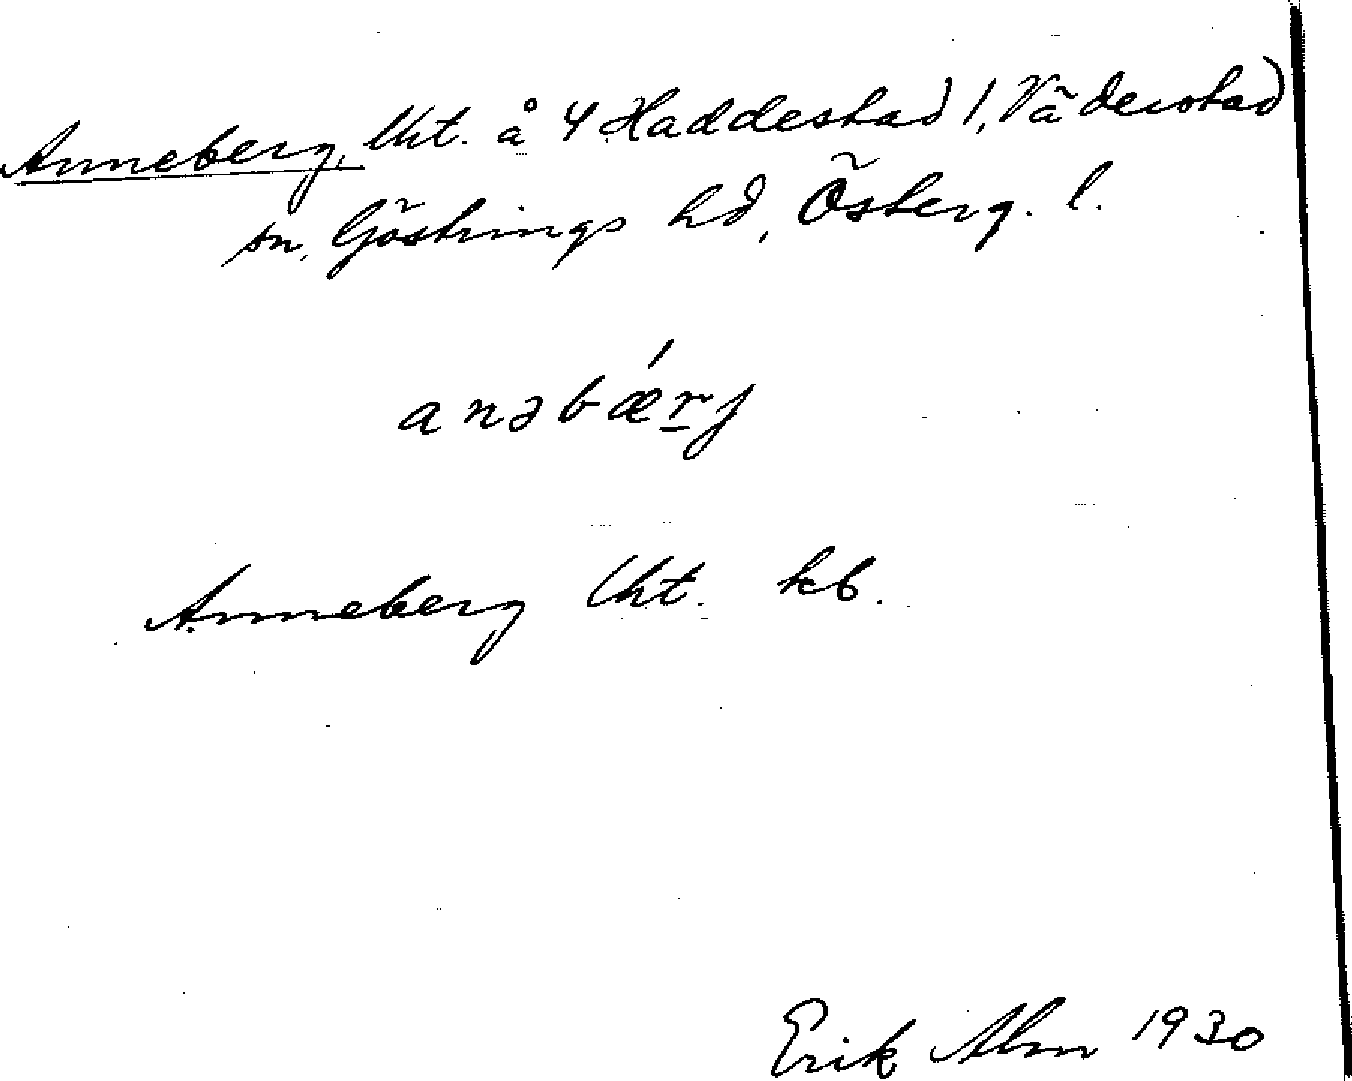 Anneberg, lht. å 4 Haddestad 1, Väderstad
sn, Göstrings hd, Österg. l.
anəbǽrj
Anneberg lht. kb.
Erik Alm 1930